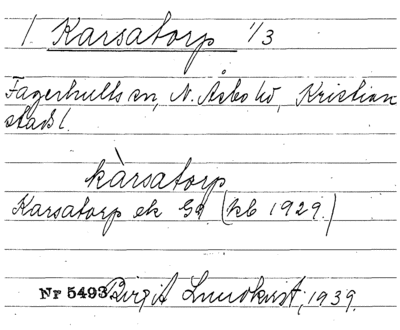 1. Karsatorp 1/3
Fagerhults sn, N. Åsbo hd, Kristian
stads l.
kàrsatorp
Karsatorp ek Gd (kb 1929.)
Nr 5493. Birgit Lundkvist, 1939.